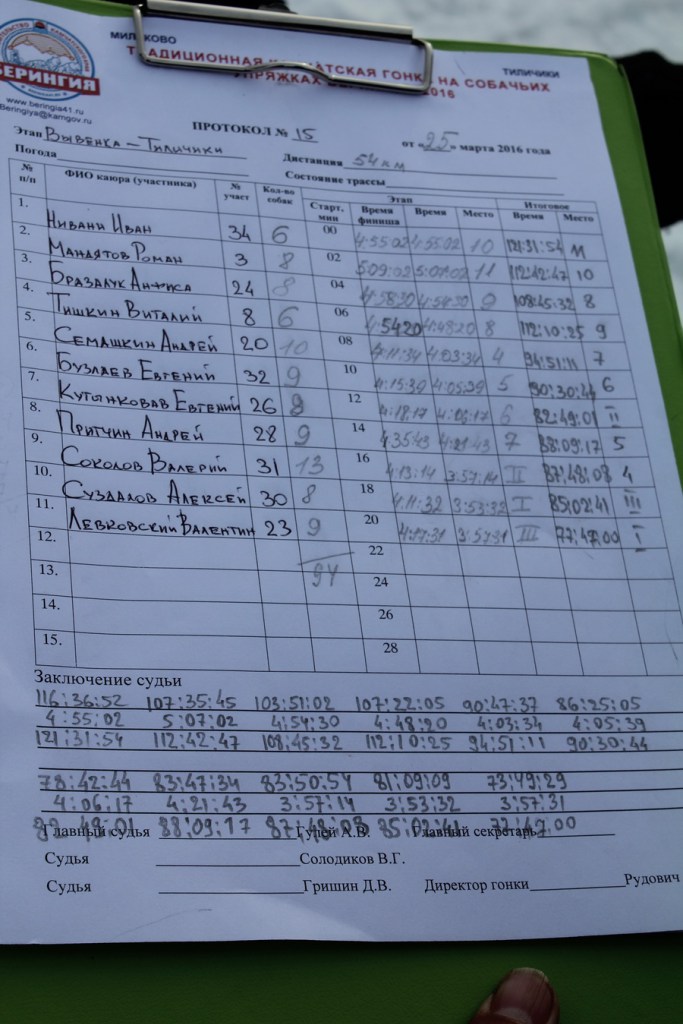 БЕРИНГИЯ
www.beringia41.ru
Beringiya@kamgov.ru
МИЛЬКОВО
ТИЛИЧИКИ
ТРАДИЦИОННАЯ КАМЧАТСКАЯ ГОНКА НА СОБАЧЬИХ
УПРЯЖКАХ 2016
ПРОТОКОЛ № 15 от «25» марта 2016 года
Этап Вывенка – Тиличики Дистанция 54 км
Погода Состояние трассы
№ п/п ФИО каюра (участника) № участ Кол-во собак Старт, мин Этап Время финиша Время Место Итоговое Время Место
1. Нивани Иван 34 6 00 4:55:02 4:55:02 10 121:31:54 11
2. Мандятов Роман 3 8 02 5:09:02 5:07:02 11 112:42:47 10
3. Бразалук Анфиса 24 8 04 4:58:30 4:54:30 9 108:45:32 8
4. Тишкин Виталий 8 6 06 4:54:20 4:48:20 8 112:10:25 9
5. Семашкин Андрей 20 10 08 4:11:34 4:03:34 4 94:51:11 7
6. Бузлаев Евгений 32 9 10 4:15:39 4:05:39 5 90:30:44 6
7. Кутынковав Евгений 26 8 12 4:18:17 4:06:17 6 82:49:01 II
8. Притчин Андрей 28 9 14 4:35:43 4:21:43 7 88:09:17 5
9. Соколов Валерий 31 13 16 4:13:14 3:57:14 II 87:48:08 4
10. Суздалов Алексей 30 8 18 4:11:32 3:53:32 I 85:02:41 III
11. Левковский Валентин 23 9 20 4:17:31 3:57:31 III 77:47:00 I
12. 22
13. 94 24
14. 26
15. 28
Заключение судьи
116:36:52 107:35:45 103:51:02 107:22:05 90:47:37 86:25:05
4:55:02 5:07:02 4:54:30 4:48:20 4:03:34 4:05:39
121:31:54 112:42:47 108:45:32 112:10:25 94:51:11 90:30:44
78:42:44 83:47:34 83:50:54 81:09:09 73:49:29
4:06:17 4:21:43 3:57:14 3:53:32 3:57:31
82:49:01 88:09:17 87:48:08 85:02:41 77:47:00
Главный судья Гулей А.В. Главный секретарь
Судья Солодиков В.Г.
Судья Гришин Д.В. Директор гонки Рудович